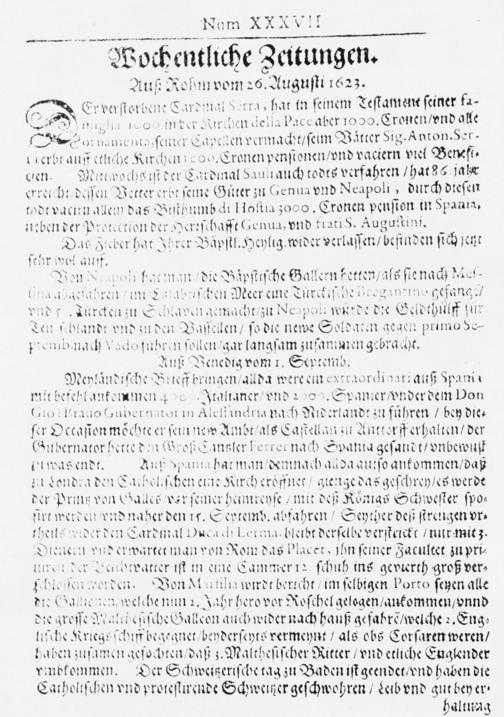 Num XXXVII
Wochentliche Zeitungen.
Auß Rohm vom 26. Augusti 1623.
DEr verstorbene Cardinal Serra, hat in seinem Testament seiner fa-
miglia 1000. in der Kirchen della Pace aber 1000. Cronen/vnd alle
Vornamenta, seiner Capellen vermacht/sein Vätter Sig. Anton. Ser-
ra erbt auff etliche Kirchen 1000. Cronen pensionen/vnd vaciern viel Benefi-
cien. Mittwochs ist der Cardinal Sauli auch todts verfahren / hat 86. jahr
erreicht, dessen Vetter erbt seine Güter zu Genua vnd Neapoli, durch diesen
todt vaciin allem das Bisthumb di Hostia 3000. Cronen pension in Spania,
neben der Protection der Herrschafft Genua, vnd frati S. Augustini.
Das Fieber hat Jhrer Bäpstl. Heylig. wider verlassen/ befinden sich jetzt
sehr wol auff.
Von Neapoli hat man / die Bäpstische Gallern hetten/als sie nach Mes-
sina abgefahren / im Calabrischen Meer eine Türckische Bregantino gefangē/
vnd Türcken zu Schlaven gemacht/zu Neapoli würde die Geldthülff für
Teutschlandt vnd zu den Vasseilen / so die newe Soldaten gegen primo Se-
ptemb. nach Vado führen sollen/gar langsam zusammen gebracht.
Auß Venedig vom 1. Septemb.
Meyländische Brieff bringen/allda were ein extraordinari auß Spania
mit befehl ankommen 4000. Italianer/ vnd 2000. Spanier/vnder dem Don
Gio: Brauo Gubernator in Alessandria nach Niderlandt zu führen / bey die-
ser Occasion möchte er sein new Ambt/als Castellan zu Anttorff erhalten / der
Gubernator hette den Groß Cantzler Ferrer nach Spania gesandt/vnbewust
zu was endt. Auß Spania hat man/demnach allda auiso ankommen/daß
zu Londra den Catholischen eine Kirch eröffnet / gienge das geschrey/es werde
der Printz von Galles/vor seiner heimreyse / mit deß Königs Schwester spo-
sirt werden/vnd naher den 15. Septemb. abfahren / Seyther deß strengen vr-
theils wider den Cardinal Duca di Lerma, bleibt derselbe versteckt / nur mit 3.
Dienern vnd erwartet man von Rom das Placet, ihn seiner Facultet zu pri-
uiren der Beichtvatter ist in eine Cammer 12. schuh ins gevierth groß ver-
schlossen worden. Von Marsilia wirdt bericht / im selbigen Porto seyen alle
die Gallionen, welche nun 2. Jahr hero vor Roschel gelogen/ankommen/vnnd
die grosse Malthesische Galleon auch wider nach hauß gefahrē/welche 2. Eng-
lische Kriegsschiff begegnet/beyderseyts vermeynt / als obs Corsaren weren/
haben zusamen gefochten/daß 3. Malthesischer Ritter / vnd etliche Englender
vmbkommen. Der Schweitzerische tag zu Baden ist geendet/vnd haben die
Catholischen vnd protestirende Schweitzer geschwohren / Leib vnd gut bey er-
haltung